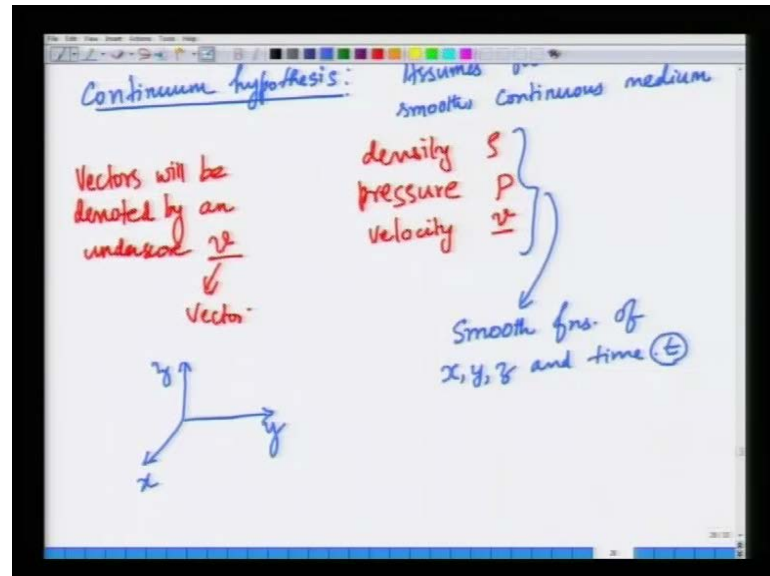 File Edit View Insert Actions Tools Help
Continuum hypothesis: Assumes
smooth, continuous medium
Vectors will be
denoted by an
underscore v
Vector
density ρ
pressure P
velocity v
Smooth fns. of
x, y, z and time t
z
y
x